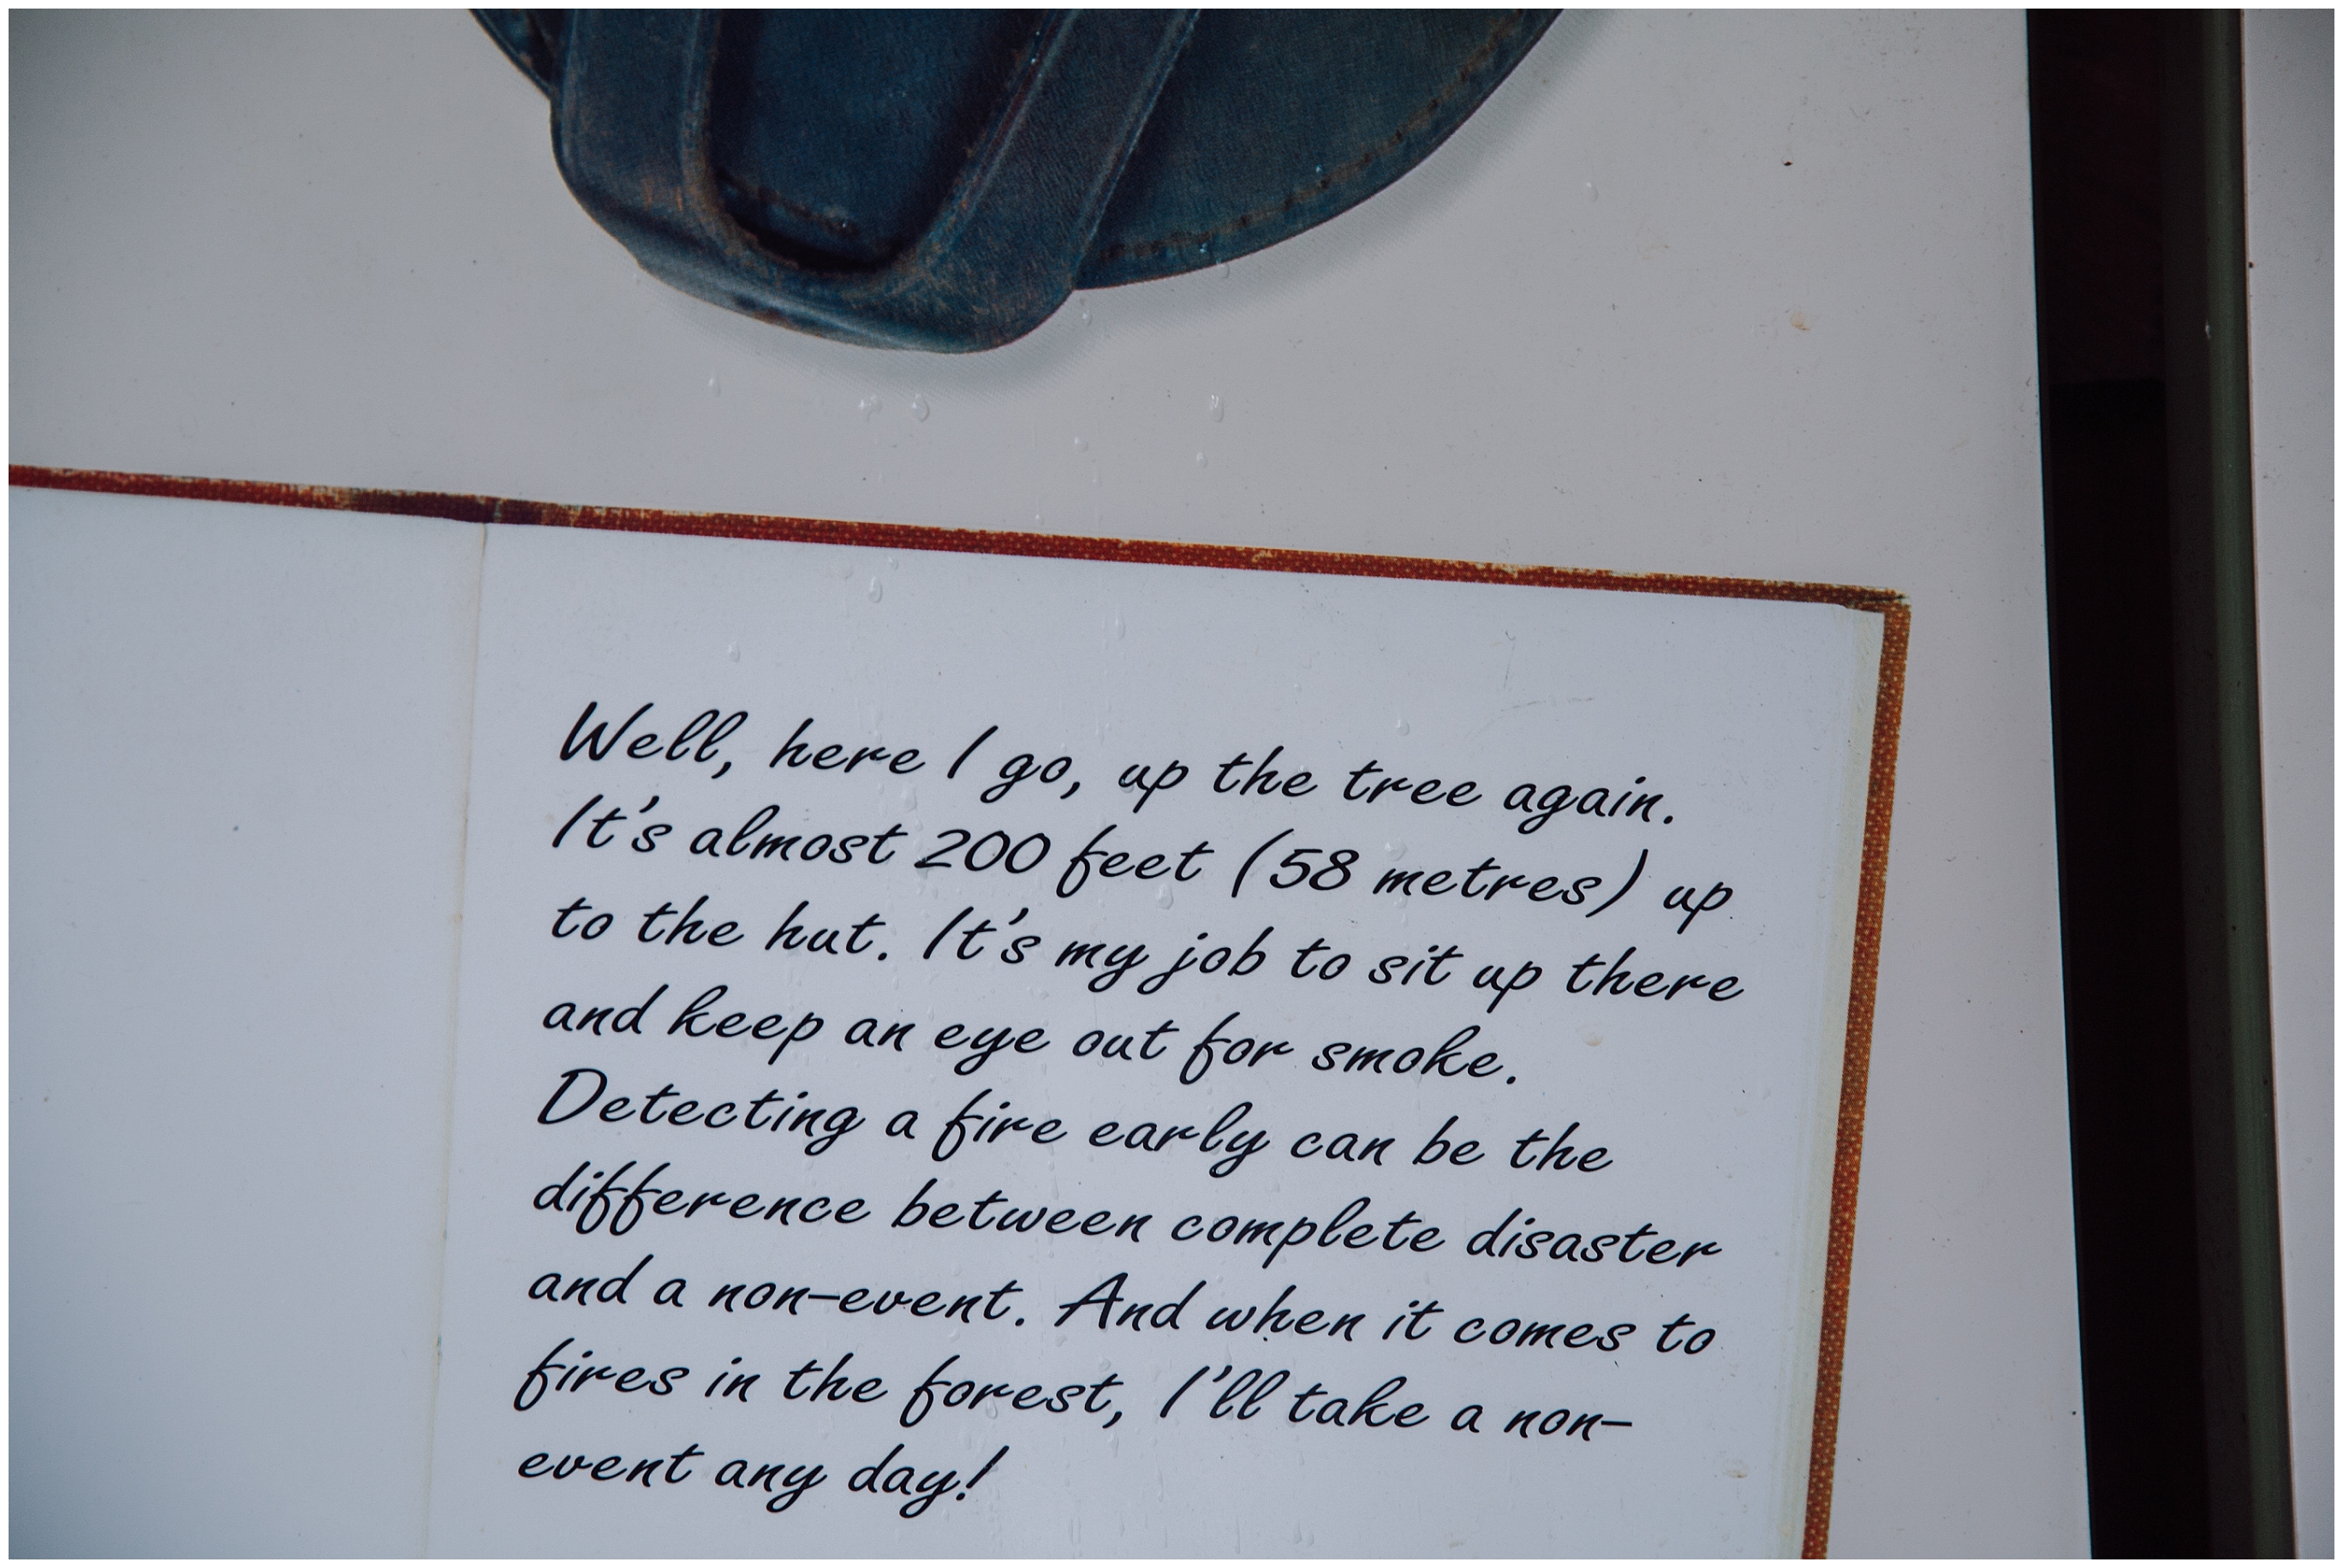 Well, here I go, up the tree again.
It's almost 200 feet (58 metres) up
to the hut. It's my job to sit up there
and keep an eye out for smoke.
Detecting a fire early can be the
difference between complete disaster
and a non-event. And when it comes to
fires in the forest, I'll take a non-
event any day!